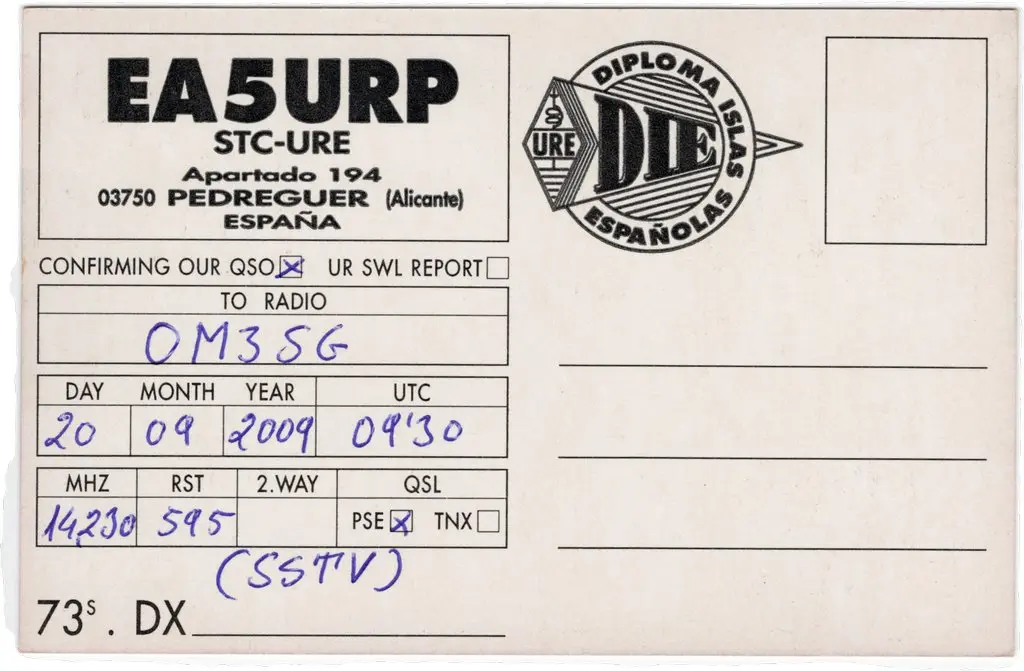 EA5URP
STC-URE
Apartado 194
03750 PEDREGUER (Alicante)
ESPAÑA
DIPLOMA ISLAS ESPAÑOLAS
URE
DIE
CONFIRMING OUR QSO UR SWL REPORT
TO RADIO
OM3SG
DAY MONTH YEAR UTC
20 09 2009 09'30
MHZ RST 2.WAY QSL
14,230 595 PSE TNX
(SSTV)
73s. DX